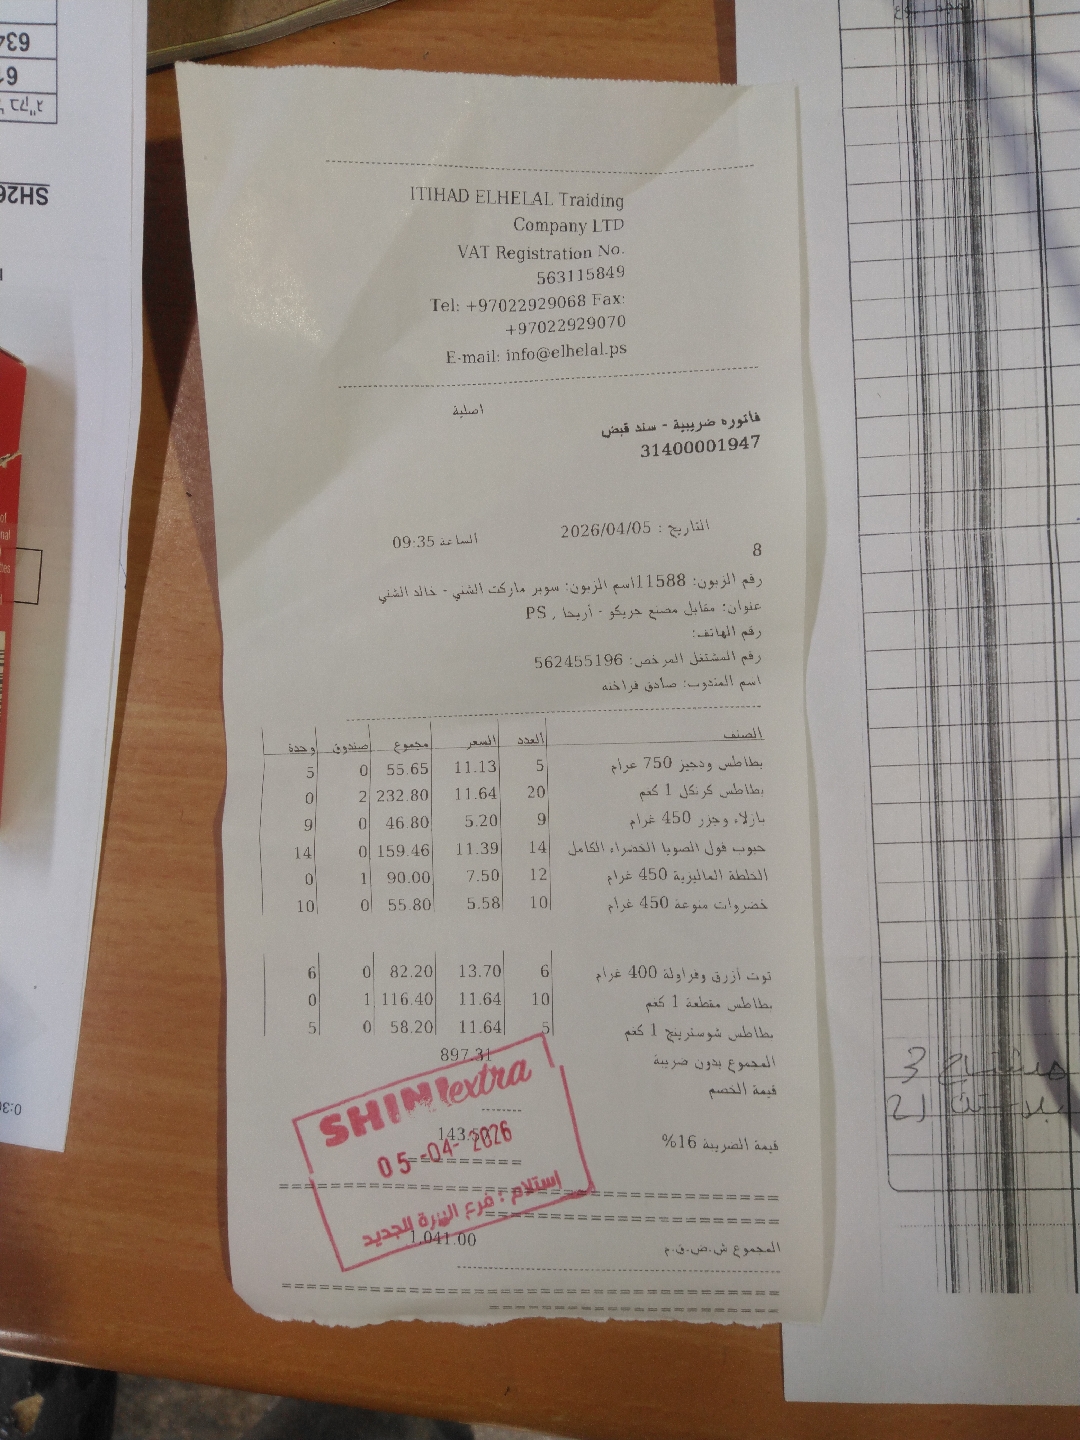 ITIHAD ELHELAL Traiding
Company LTD
VAT Registration No.
563115849
Tel: +97022929068 Fax:
+97022929070
E-mail: info@elhelal.ps
اصلية
فاتوره ضريبية - سند قبض
31400001947
التاريخ : 2026/04/05 الساعة 09:35
8
رقم الزبون: 11588اسم الزبون: سوبر ماركت الشني - خالد الشني
عنوان: مقابل مصنع جريكو - أريحا , PS
رقم الهاتف:
رقم المشتغل المرخص: 562455196
اسم المندوب: صادق فراخنه
الصنف العدد السعر مجموع صندوق وحدة
بطاطس ودجيز 750 غرام 5 11.13 55.65 0 5
بطاطس كرنكل 1 كغم 20 11.64 232.80 2 0
بازلاء وجزر 450 غرام 9 5.20 46.80 0 9
حبوب فول الصويا الخضراء الكامل 14 11.39 159.46 0 14
الخلطة الماليزية 450 غرام 12 7.50 90.00 1 0
خضروات منوعة 450 غرام 10 5.58 55.80 0 10
توت أزرق وفراولة 400 غرام 6 13.70 82.20 0 6
بطاطس مقطعة 1 كغم 10 11.64 116.40 1 0
بطاطس شوسترينج 1 كغم 5 11.64 58.20 0 5
المجموع بدون ضريبة 897.31
قيمة الخصم
قيمة الضريبة 16%
SHINI extra
05-04-2026
استلام : فرع البيرة الجديد
المجموع ش.ض.ق.م 1,041.00
634
SH26